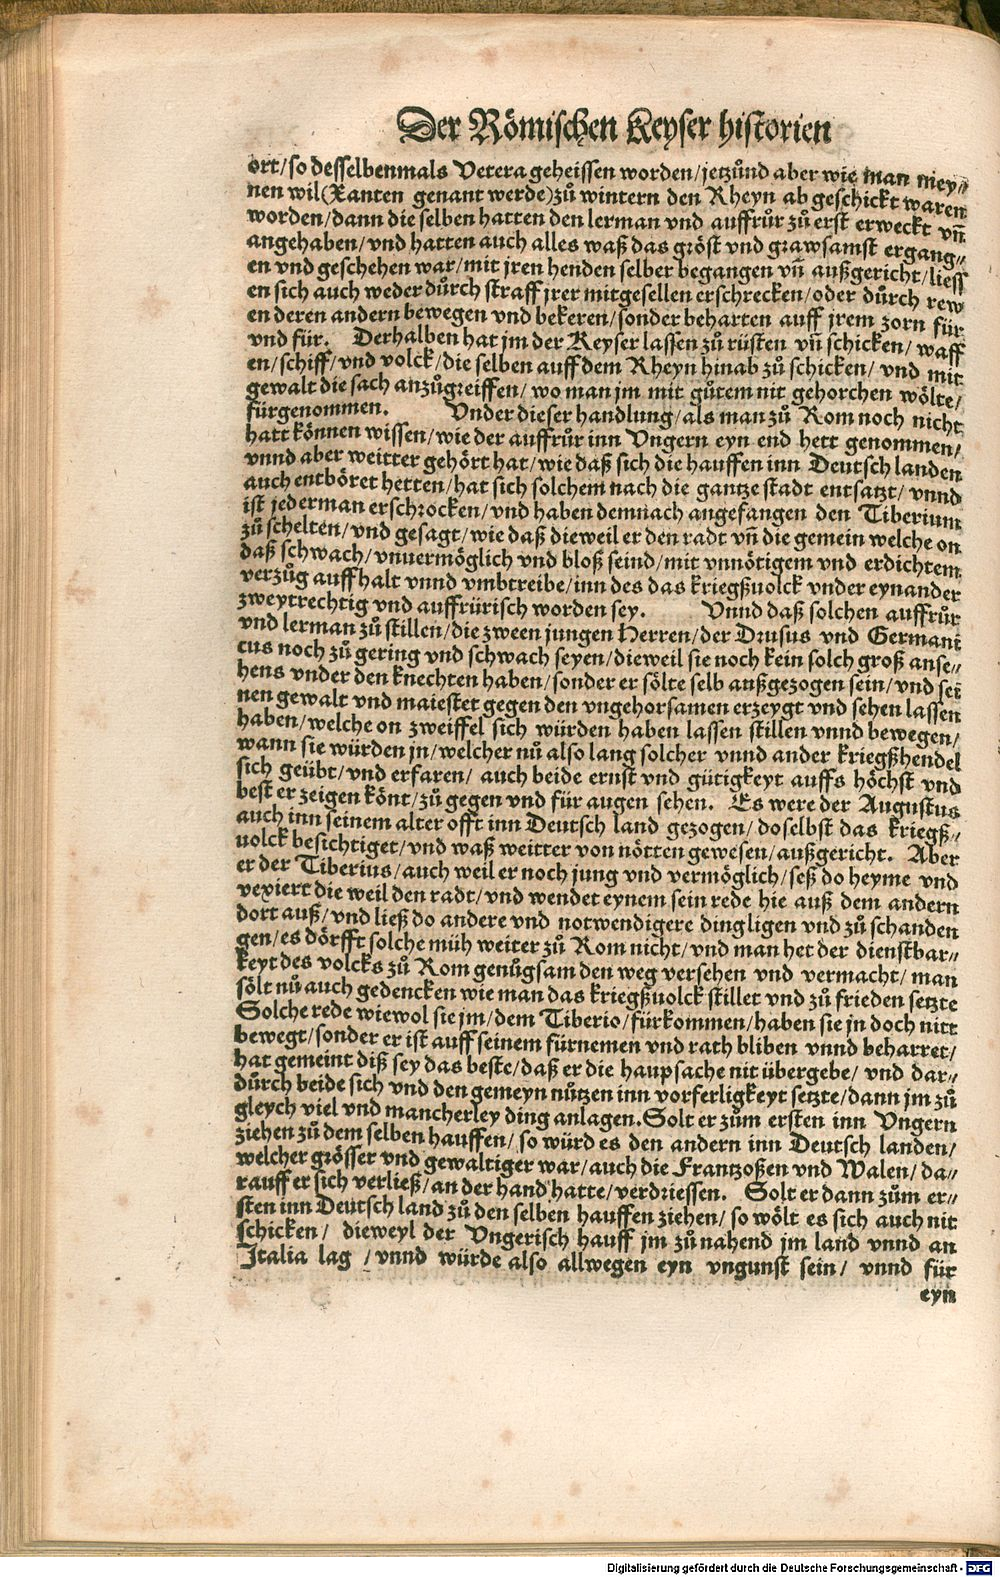 Der Römischen Keyser historien
ort/ so desselbenmals Vetera geheissen worden/ jetzůnd aber wie man mey⸗
nen wil (Xanten genant werde) zů wintern den Rheyn ab geschickt waren
worden/ dann die selben hatten den lerman vnd auffrůr zů erst erweckt vñ
angehaben/ vnd hatten auch alles waß das gröst vnd grawsamst ergang⸗
en vnd geschehen war/ mit jren henden selber begangen vñ außgericht/ liess
en sich auch weder důrch straff jrer mitgesellen erschrecken/ oder důrch rew
en deren andern bewegen vnd bekeren/ sonder beharten auff jrem zorn für
vnd für. Derhalben hat jm der Keyser lassen zů rüsten vñ schicken/ waff
en/ schiff/ vnd volck/ die selben auff dem Rheyn hinab zů schicken/ vnd mit
gewalt die sach anzůgreiffen/ wo man jm mit gůtem nit gehorchen wölte/
fürgenommen. Vnder dieser handlung/ als man zů Rom noch nicht
hatt können wissen/ wie der auffrůr inn Vngern eyn end hett genommen/
vnnd aber weitter gehört hat/ wie daß sich die hauffen inn Deutsch landen
auch entböret hetten/ hat sich solchem nach die gantze stadt entsatzt/ vnnd
ist jederman erschrocken/ vnd haben demnach angefangen den Tiberium
zů schelten/ vnd gesagt/ wie daß dieweil er den radt vñ die gemein welche on
daß schwach/ vnuermöglich vnd bloß seind/ mit vnnötigem vnd erdichtem
verzůg auffhalt vnnd vmbtreibe/ inn des das kriegßuolck vnder eynander
zweytrechtig vnd auffrürisch worden sey. Vnnd daß solchen auffrůr
vnd lerman zů stillen/ die zween jungen Herren/ der Drusus vnd Germani
cus noch zů gering vnd schwach seyen/ dieweil sie noch kein solch groß anse⸗
hens vnder den knechten haben/ sonder er sölte selb außgezogen sein/ vnd sei
nen gewalt vnd maiestet gegen den vngehorsamen erzeygt vnd sehen lassen
haben/ welche on zweiffel sich würden haben lassen stillen vnnd bewegen/
wann sie würden jn/ welcher nů also lang solcher vnnd ander kriegßhendel
sich geübt/ vnd erfaren/ auch beide ernst vnd gütigkeyt auffs höchst vnd
best er zeigen könt/ zů gegen vnd für augen sehen. Es were der Augustus
auch inn seinem alter offt inn Deutsch land gezogen/ doselbst das kriegß⸗
uolck besichtiget/ vnd waß weitter von nötten gewesen/ außgericht. Aber
er der Tiberius/ auch weil er noch jung vnd vermöglich/ seß do heyme vnd
vexiert die weil den radt/ vnd wendet eynem sein rede hie auß dem andern
dort auß/ vnd ließ do andere vnd notwendigere dingligen vnd zů schanden
gen/ es dörfft solche müh weiter zů Rom nicht/ vnd man het der dienstbar⸗
keyt des volcks zů Rom genůgsam den weg versehen vnd vermacht/ man
sölt nů auch gedencken wie man das kriegßuolck stillet vnd zů frieden setzte
Solche rede wiewol sie jm/ dem Tiberio/ fürkommen/ haben sie jn doch nitt
bewegt/ sonder er ist auff seinem fürnemen vnd rath bliben vnnd beharret/
hat gemeint diß sey das beste/ daß er die haupsache nit übergebe/ vnd dar⸗
dürch beide sich vnd den gemeyn nützen inn vorferligkeyt setzte/ dann jm zů
gleych viel vnd mancherley ding anlagen. Solt er zům ersten inn Vngern
ziehen zů dem selben hauffen/ so würd es den andern inn Deutsch landen/
welcher grösser vnd gewaltiger war/ auch die Frantzoßen vnd Walen/ da⸗
rauff er sich verließ/ an der hand hatte/ verdriessen. Solt er dann zům er⸗
sten inn Deutsch land zů den selben hauffen ziehen/ so wölt es sich auch nit
schicken/ dieweyl der Vngerisch hauff jm zů nahend jm land vnnd an
Italia lag/ vnnd würde also allwegen eyn vngunst sein/ vnnd für
eyn
Digitalisierung gefördert durch die Deutsche Forschungsgemeinschaft - DFG